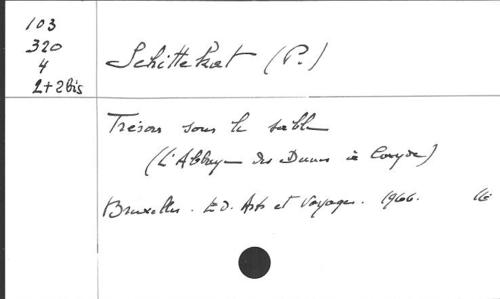 103
320
4
2+2bis
Schittekat (P.)
Trésors sous le sable
(L'Abbaye des Dunes à Coxyde)
Bruxelles. Ed. Arts et Voyages. 1966.